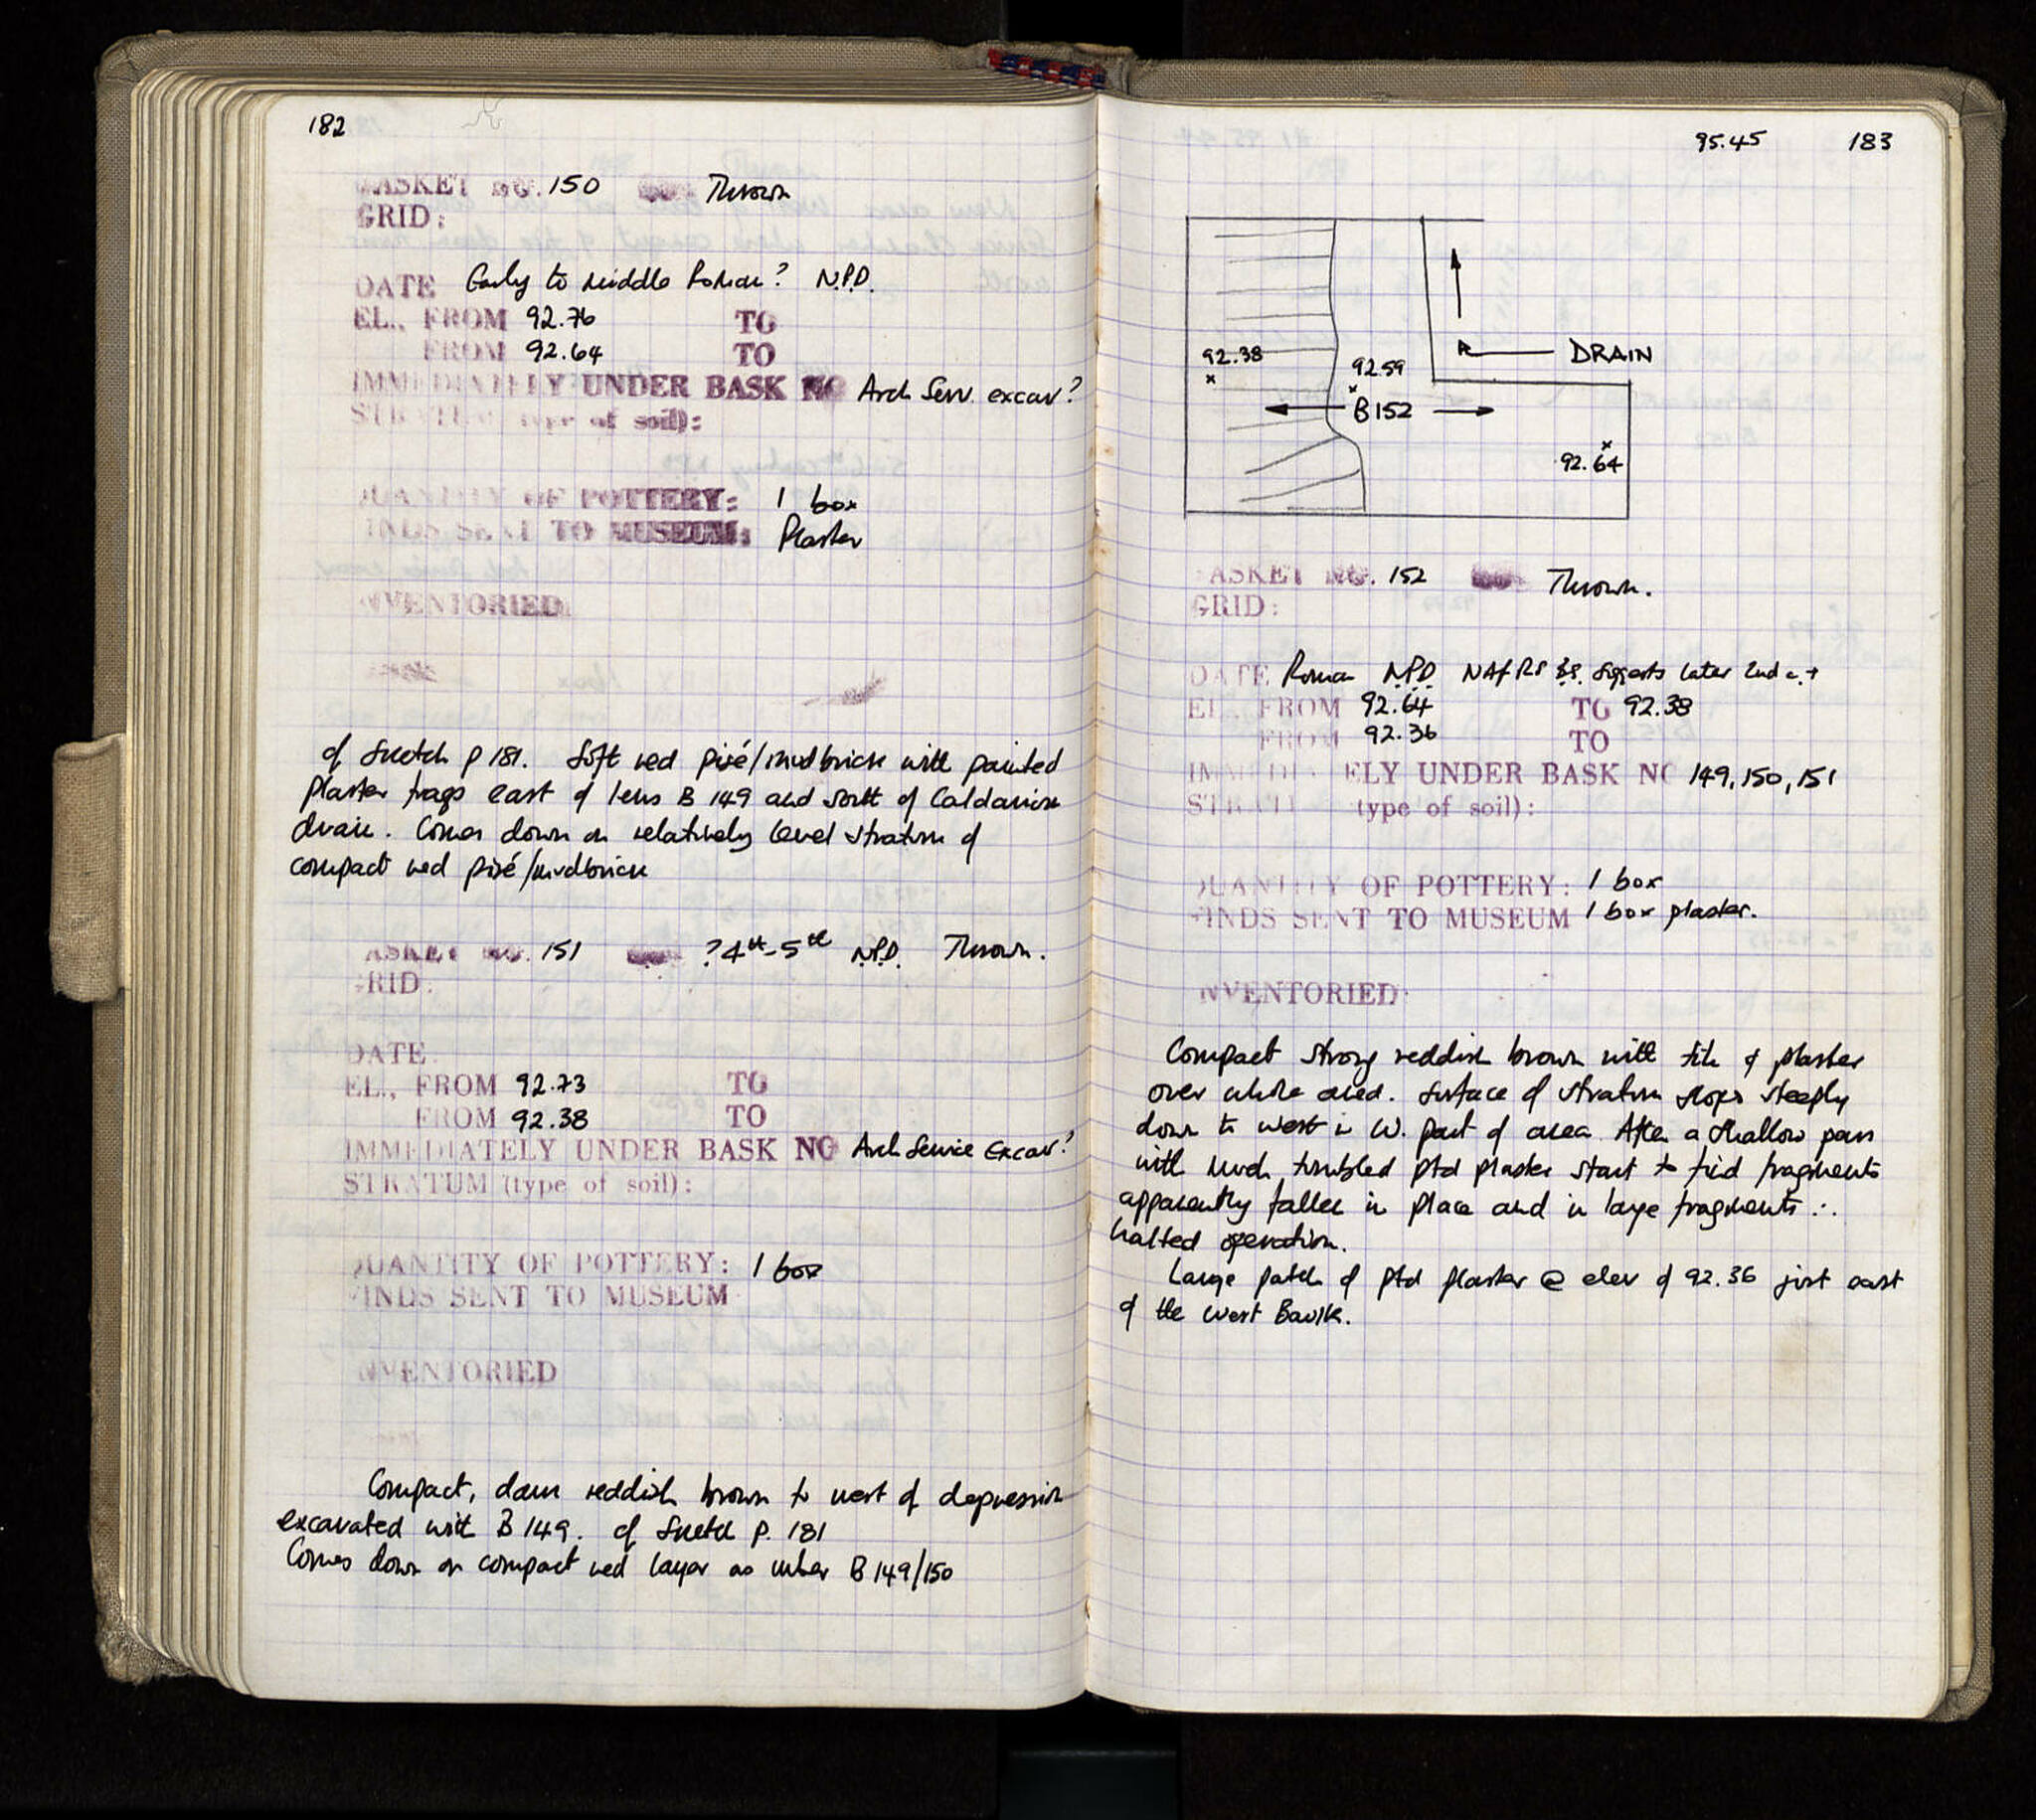 182
BASKET NO. 150 Thrown
GRID:
DATE Early to Middle Roman? N.P.D.
EL., FROM 92.76 TO
FROM 92.64 TO
IMMEDIATELY UNDER BASK NO Arch Serv. excav?
STRATUM (type of soil):
QUANTITY OF POTTERY: 1 box
FINDS SENT TO MUSEUM: Plaster
INVENTORIED:
cf sketch p 181. Soft red pisé/mudbrick with painted
plaster frags east of lens B 149 and south of Caldarium
drain. Comes down on relatively level stratum of
compact red pisé/mudbrick
BASKET NO. 151 ? 4th-5th N.P.D. Thrown.
GRID:
DATE
EL., FROM 92.73 TO
FROM 92.38 TO
IMMEDIATELY UNDER BASK NO Arch Service Excav?
STRATUM (type of soil):
QUANTITY OF POTTERY: 1 box
FINDS SENT TO MUSEUM
INVENTORIED
Compact, reddish brown to west of depression
excavated with B 149. cf sketch p. 181
Comes down on compact red layer as under B 149/150
95.45 183
92.38
92.59
DRAIN
B 152
92.64
BASKET NO. 152 Thrown.
GRID:
DATE Roman N.P.D. NAfRS suggests later 2nd c.+
EL., FROM 92.64 TO 92.38
FROM 92.36 TO
IMMEDIATELY UNDER BASK NO 149, 150, 151
STRATUM (type of soil):
QUANTITY OF POTTERY: 1 box
FINDS SENT TO MUSEUM 1 box plaster.
INVENTORIED
Compact strong reddish brown with tile & plaster
over whole area. Surface of stratum slopes steeply
down to west in W. part of area. After a shallow pass
with much tumbled ptd plaster start to find fragments
apparently fallen in place and in large fragments ∴
halted operation.
Large patch of ptd plaster @ elev of 92.36 just east
of the west Baulk.